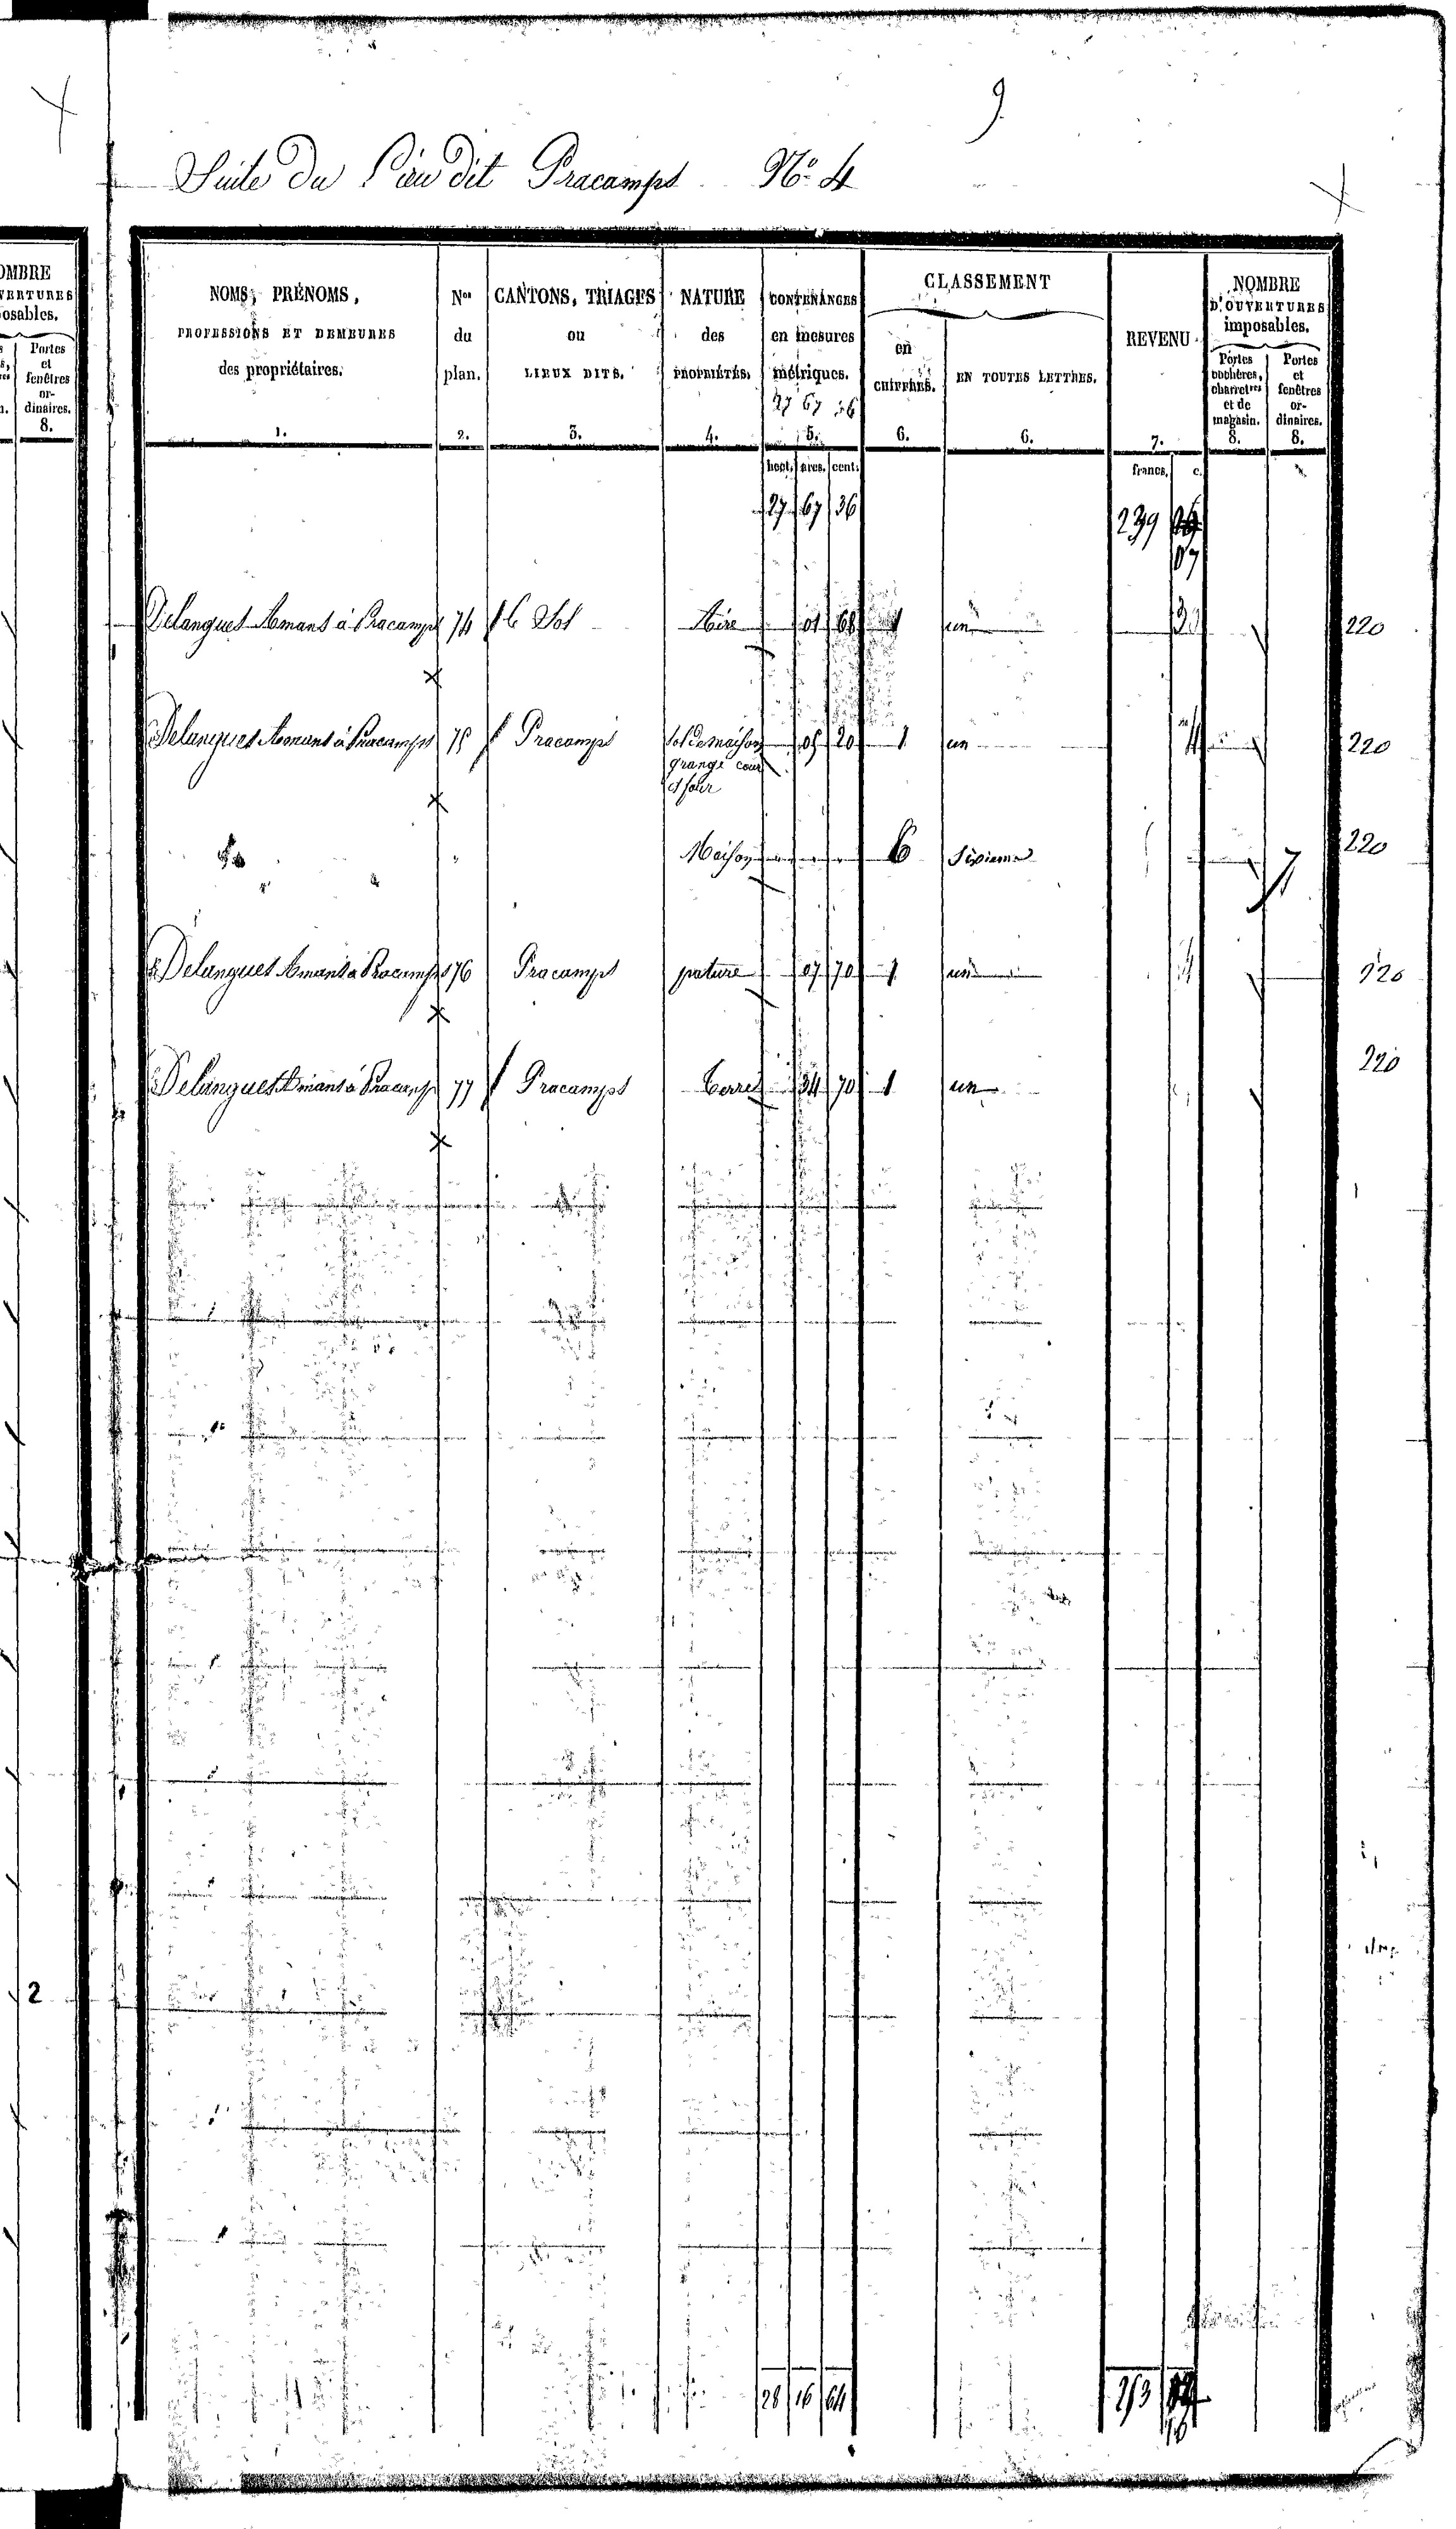 9
Suite Du Lieu dit Pracamps Nº 4
OMBRE
VERTURES
osables.
Portes
et
fenêtres
or-
dinaires.
8.
2
NOMS, PRÉNOMS,
PROFESSIONS ET DEMEURES
des propriétaires.
1.
Nos
du
plan.
2.
CANTONS, TRIAGES
ou
LIEUX DITS.
3.
NATURE
des
PROPRIÉTÉS.
4.
CONTENANCES
en mesures
métriques.
27 67 36
5.
CLASSEMENT
en
CHIFFRES.
6.
EN TOUTES LETTRES.
6.
REVENU
7.
NOMBRE
D'OUVERTURES
imposables.
Portes
cochères,
charretres
et de
magasin.
8.
Portes
et
fenêtres
or-
dinaires.
8.
hect. ares. cent. francs. c.
27 67 36 239
07
Delangues Amans à Pracamps 74 Sol Aire 01 68 1 un 220
Delangues Amans à Pracamps 75 Pracamps Sol de maison 05 20 1 un 220
grange cour
et four
Maison 6 Sixieme 220
Delangues Amans à Pracamps 76 Pracamps pature 07 70 1 un 220
Delangues Amans à Pracamps 77 Pracamps Terre 34 70 1 un 220
28 16 64 253